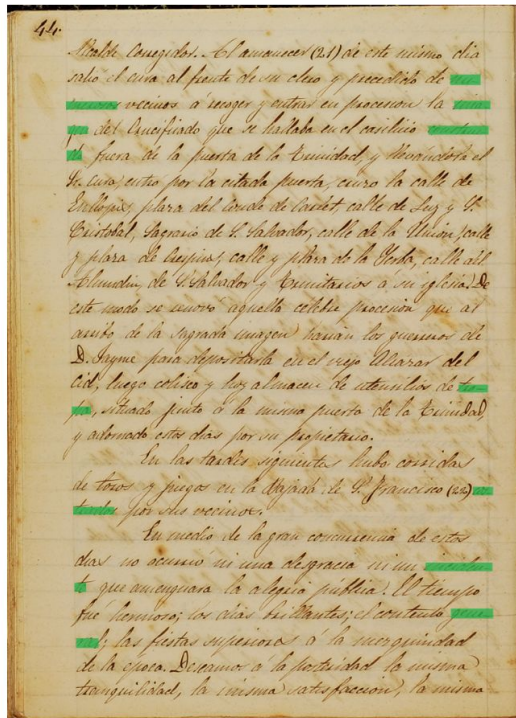 44.
Alcalde Corregidor. Al amanecer (21) de este mismo dia
salió el cura al frente de su clero y precedido de nu-
merosos vecinos a recoger y entrar en procesion la ima-
gen del Crucificado que se hallaba en el casilicio construi-
do fuera de la puerta de la Trinidad, y llevandola el
Sr. Cura, entró por la citada puerta, cruzó la calle de
plaza del Conde de Carlet, calle de Luz y S.
Cristobal, Sagrario de S. Salvador, calle de la Union, calle
y plaza de Crespins, calle y plaza de la Yerba, calle del
Almudin, de S. Salvador y Trinitarios a su iglesia. De
este modo se renovó aquella celebre procesion que al
arribo de la Sagrada imagen harian los guerreros de
D. Jayme para depositarla en el viejo Alcazar del
Cid, luego coliseo y hoy almacen de utensilios de tro-
pa, situado junto á la misma puerta de la Trinidad,
y adornado estos dias por su propietario.
En las tardes siguientes hubo corridas
de toros y juegos en la Bajada de S. Francisco (22)
por sus vecinos.
En medio de la gran concurrencia de estos
dias no ocurrió ni una desgracia ni un inciden-
te que amenguara la alegria pública. El tiempo
fué hermoso; los dias brillantes; el contento gene-
ral; las fiestas superiores á la mezquindad
de la época. Deseamos a la posteridad la misma
tranquilidad, la misma satisfaccion, la misma